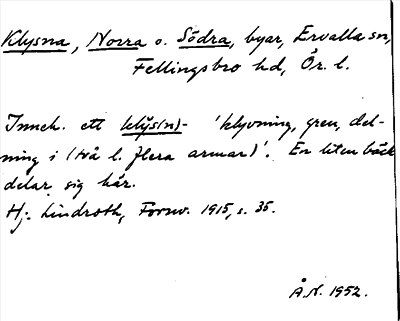 Klysna, Norra o. Södra, byar, Ervalla sn,
Fellingsbro hd, Ör. l.
Inneh. ett klys(n)- 'klyvning, gren, del-
ning i (två l. flera armar)'. En liten bäck
delar sig här.
Hj. Lindroth, Fornv. 1915, s. 35.
Å.N. 1952.